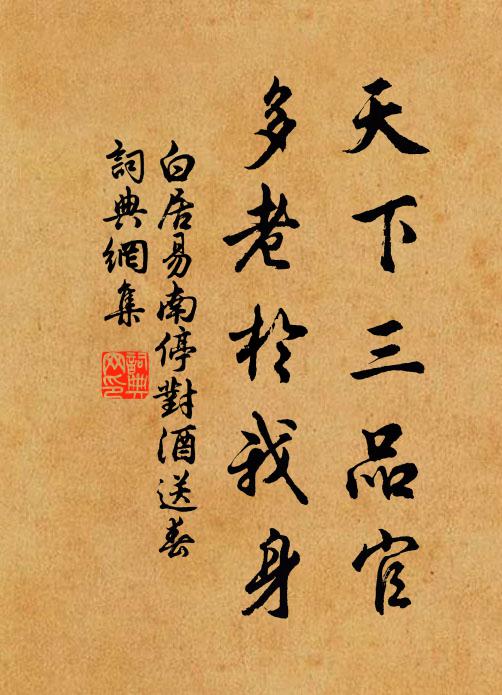 天下三品官
多老於我身
白居易南停對酒送春
詞典網集
詞典網印